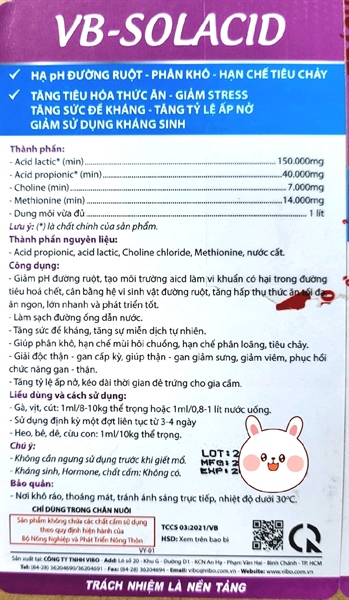 VB-SOLACID
HẠ pH ĐƯỜNG RUỘT - PHÂN KHÔ - HẠN CHẾ TIÊU CHẢY
TĂNG TIÊU HÓA THỨC ĂN - GIẢM STRESS
TĂNG SỨC ĐỀ KHÁNG - TĂNG TỶ LỆ ẤP NỞ
GIẢM SỬ DỤNG KHÁNG SINH
Thành phần:
- Acid lactic* (min) 150.000mg
- Acid propionic* (min) 40.000mg
- Choline (min) 7.000mg
- Methionine (min) 14.000mg
- Dung môi vừa đủ 1 lít
Lưu ý: (*) là chất chính của sản phẩm.
Thành phần nguyên liệu:
- Acid propionic, acid lactic, Choline chloride, Methionine, nước cất.
Công dụng:
- Giảm pH đường ruột, tạo môi trường aicd làm vi khuẩn có hại trong đường
tiêu hoá chết, cân bằng hệ vi sinh vật đường ruột, tăng hấp thụ thức ăn tối đa,
ăn ngon, lớn nhanh và phát triển tốt.
- Làm sạch đường ống dẫn nước.
- Tăng sức đề kháng, tăng sự miễn dịch tự nhiên.
- Giúp phân khô, hạn chế mùi hôi chuồng, hạn chế phân loãng, tiêu chảy.
- Giải độc thận - gan cấp kỳ, giúp thận - gan giảm sưng, giảm viêm, phục hồi
chức năng gan - thận.
- Tăng tỷ lệ ấp nở, kéo dài thời gian đẻ trứng cho gia cầm.
Liều dùng và cách sử dụng:
- Gà, vịt, cút: 1ml/8-10kg thể trọng hoặc 1ml/0,8-1 lít nước uống.
- Sử dụng định kỳ một đợt liên tục từ 3-4 ngày
- Heo, bê, dê, cừu con: 1ml/10kg thể trọng.
Chú ý:
- Không cần ngưng sử dụng trước khi giết mổ.
- Kháng sinh, Hormone, chất cấm: Không có.
LOT: 2
MFG: 2
EXP: 2
Bảo quản:
- Nơi khô ráo, thoáng mát, tránh ánh sáng trực tiếp, nhiệt độ dưới 30°C.
CHỈ DÙNG TRONG CHĂN NUÔI
Sản phẩm không chứa các chất cấm sử dụng
theo quy định hiện hành của
Bộ Nông Nghiệp và Phát Triển Nông Thôn
VY-01
TCCS 03:2021/VB
HSD: Xem trên bao bì
Sản xuất tại: CÔNG TY TNHH VIBO - Add: Lô số 20 - Khu G - Đường D1 - KCN An Hạ - Phạm Văn Hai - Bình Chánh - TP. HCM
Tel: (84-28) 36204690/36204691 - Fax: (84-28) 36204694 - Email: vibo@vibo.com.vn - Website: www.vibo.com.vn
TRÁCH NHIỆM LÀ NỀN TẢNG